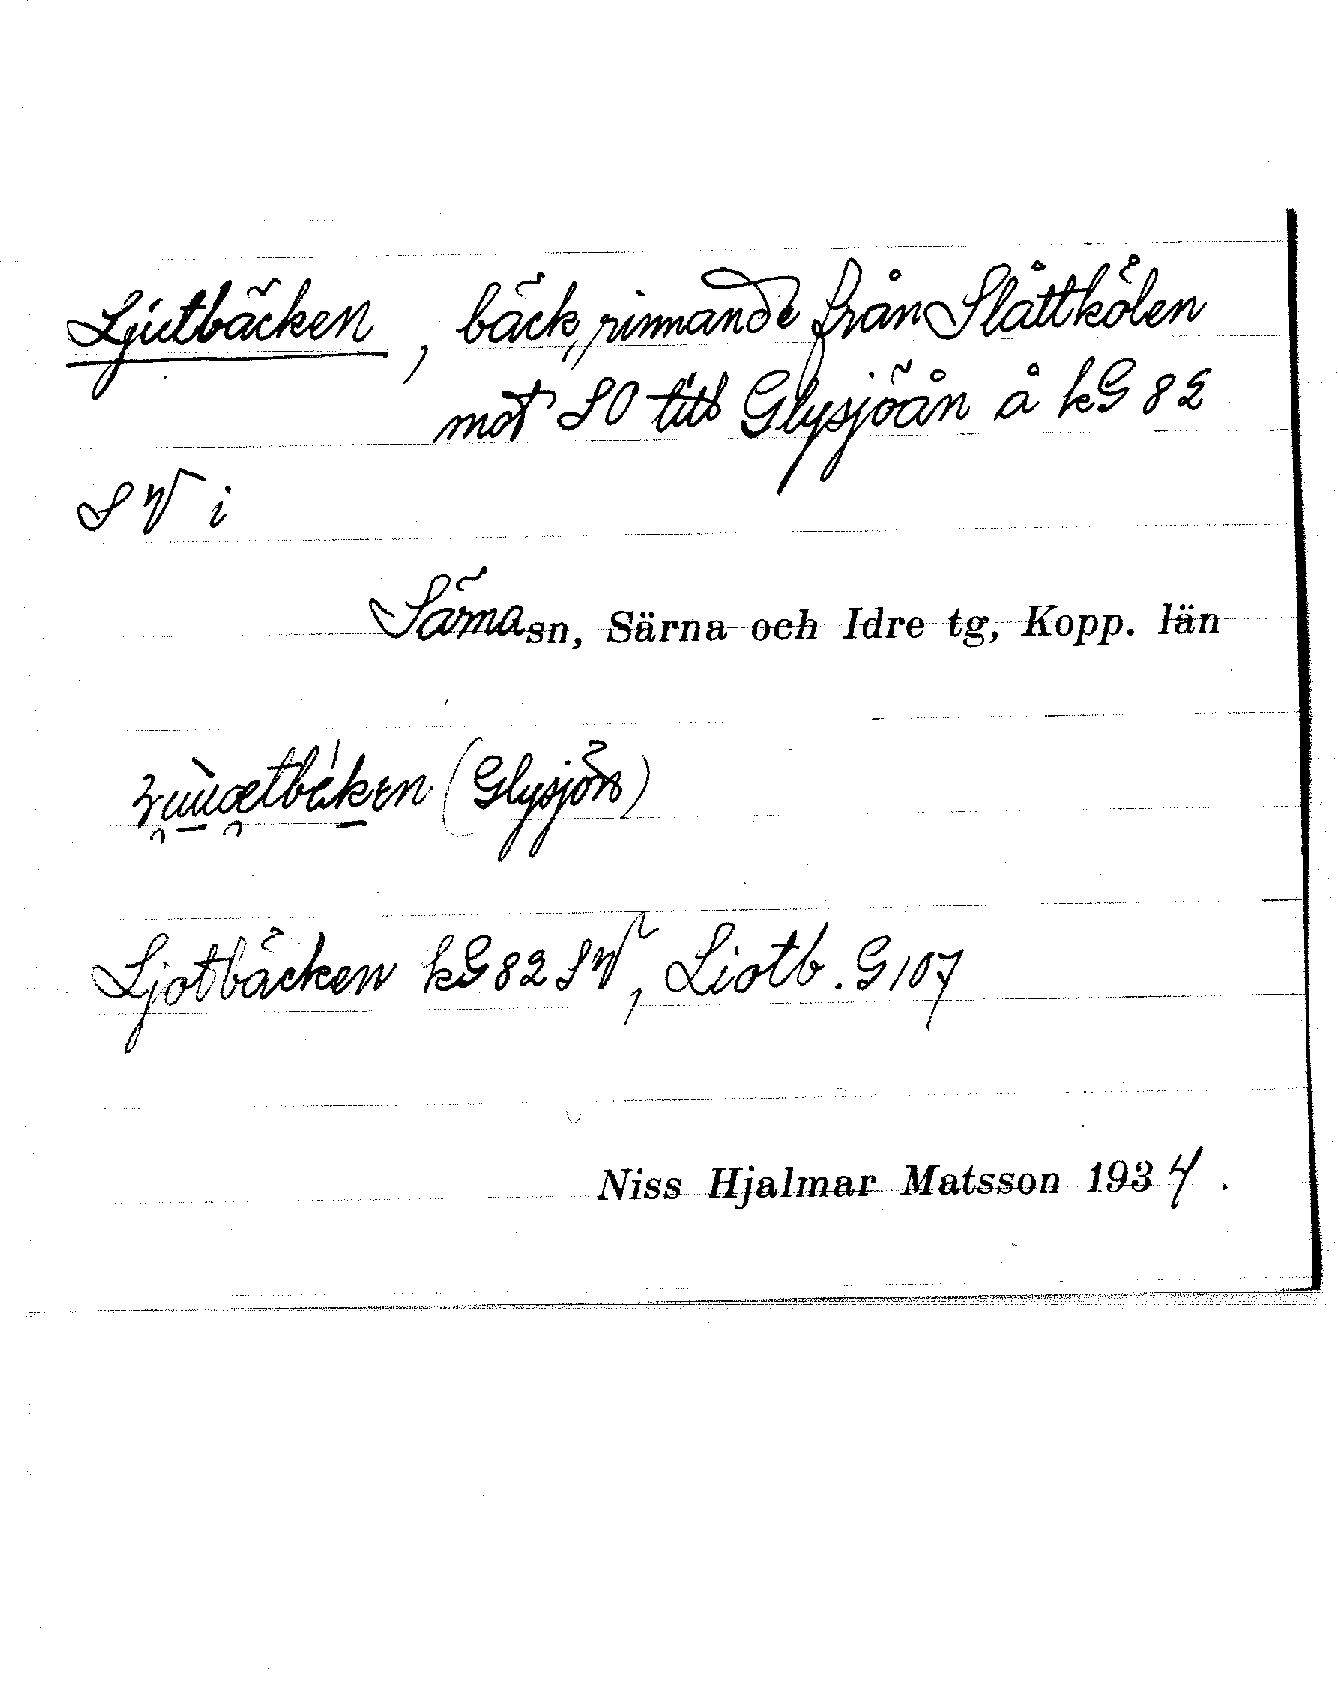 Ljutbäcken, bäck, rinnande från Slåttkölen
mot SO till Glysjöån å kG 82
SV i
Särna sn, Särna och Idre tg, Kopp. län
(Glysjön)
Ljotbäcken kG 82 SV, Liotb. G 107
Niss Hjalmar Matsson 1934.